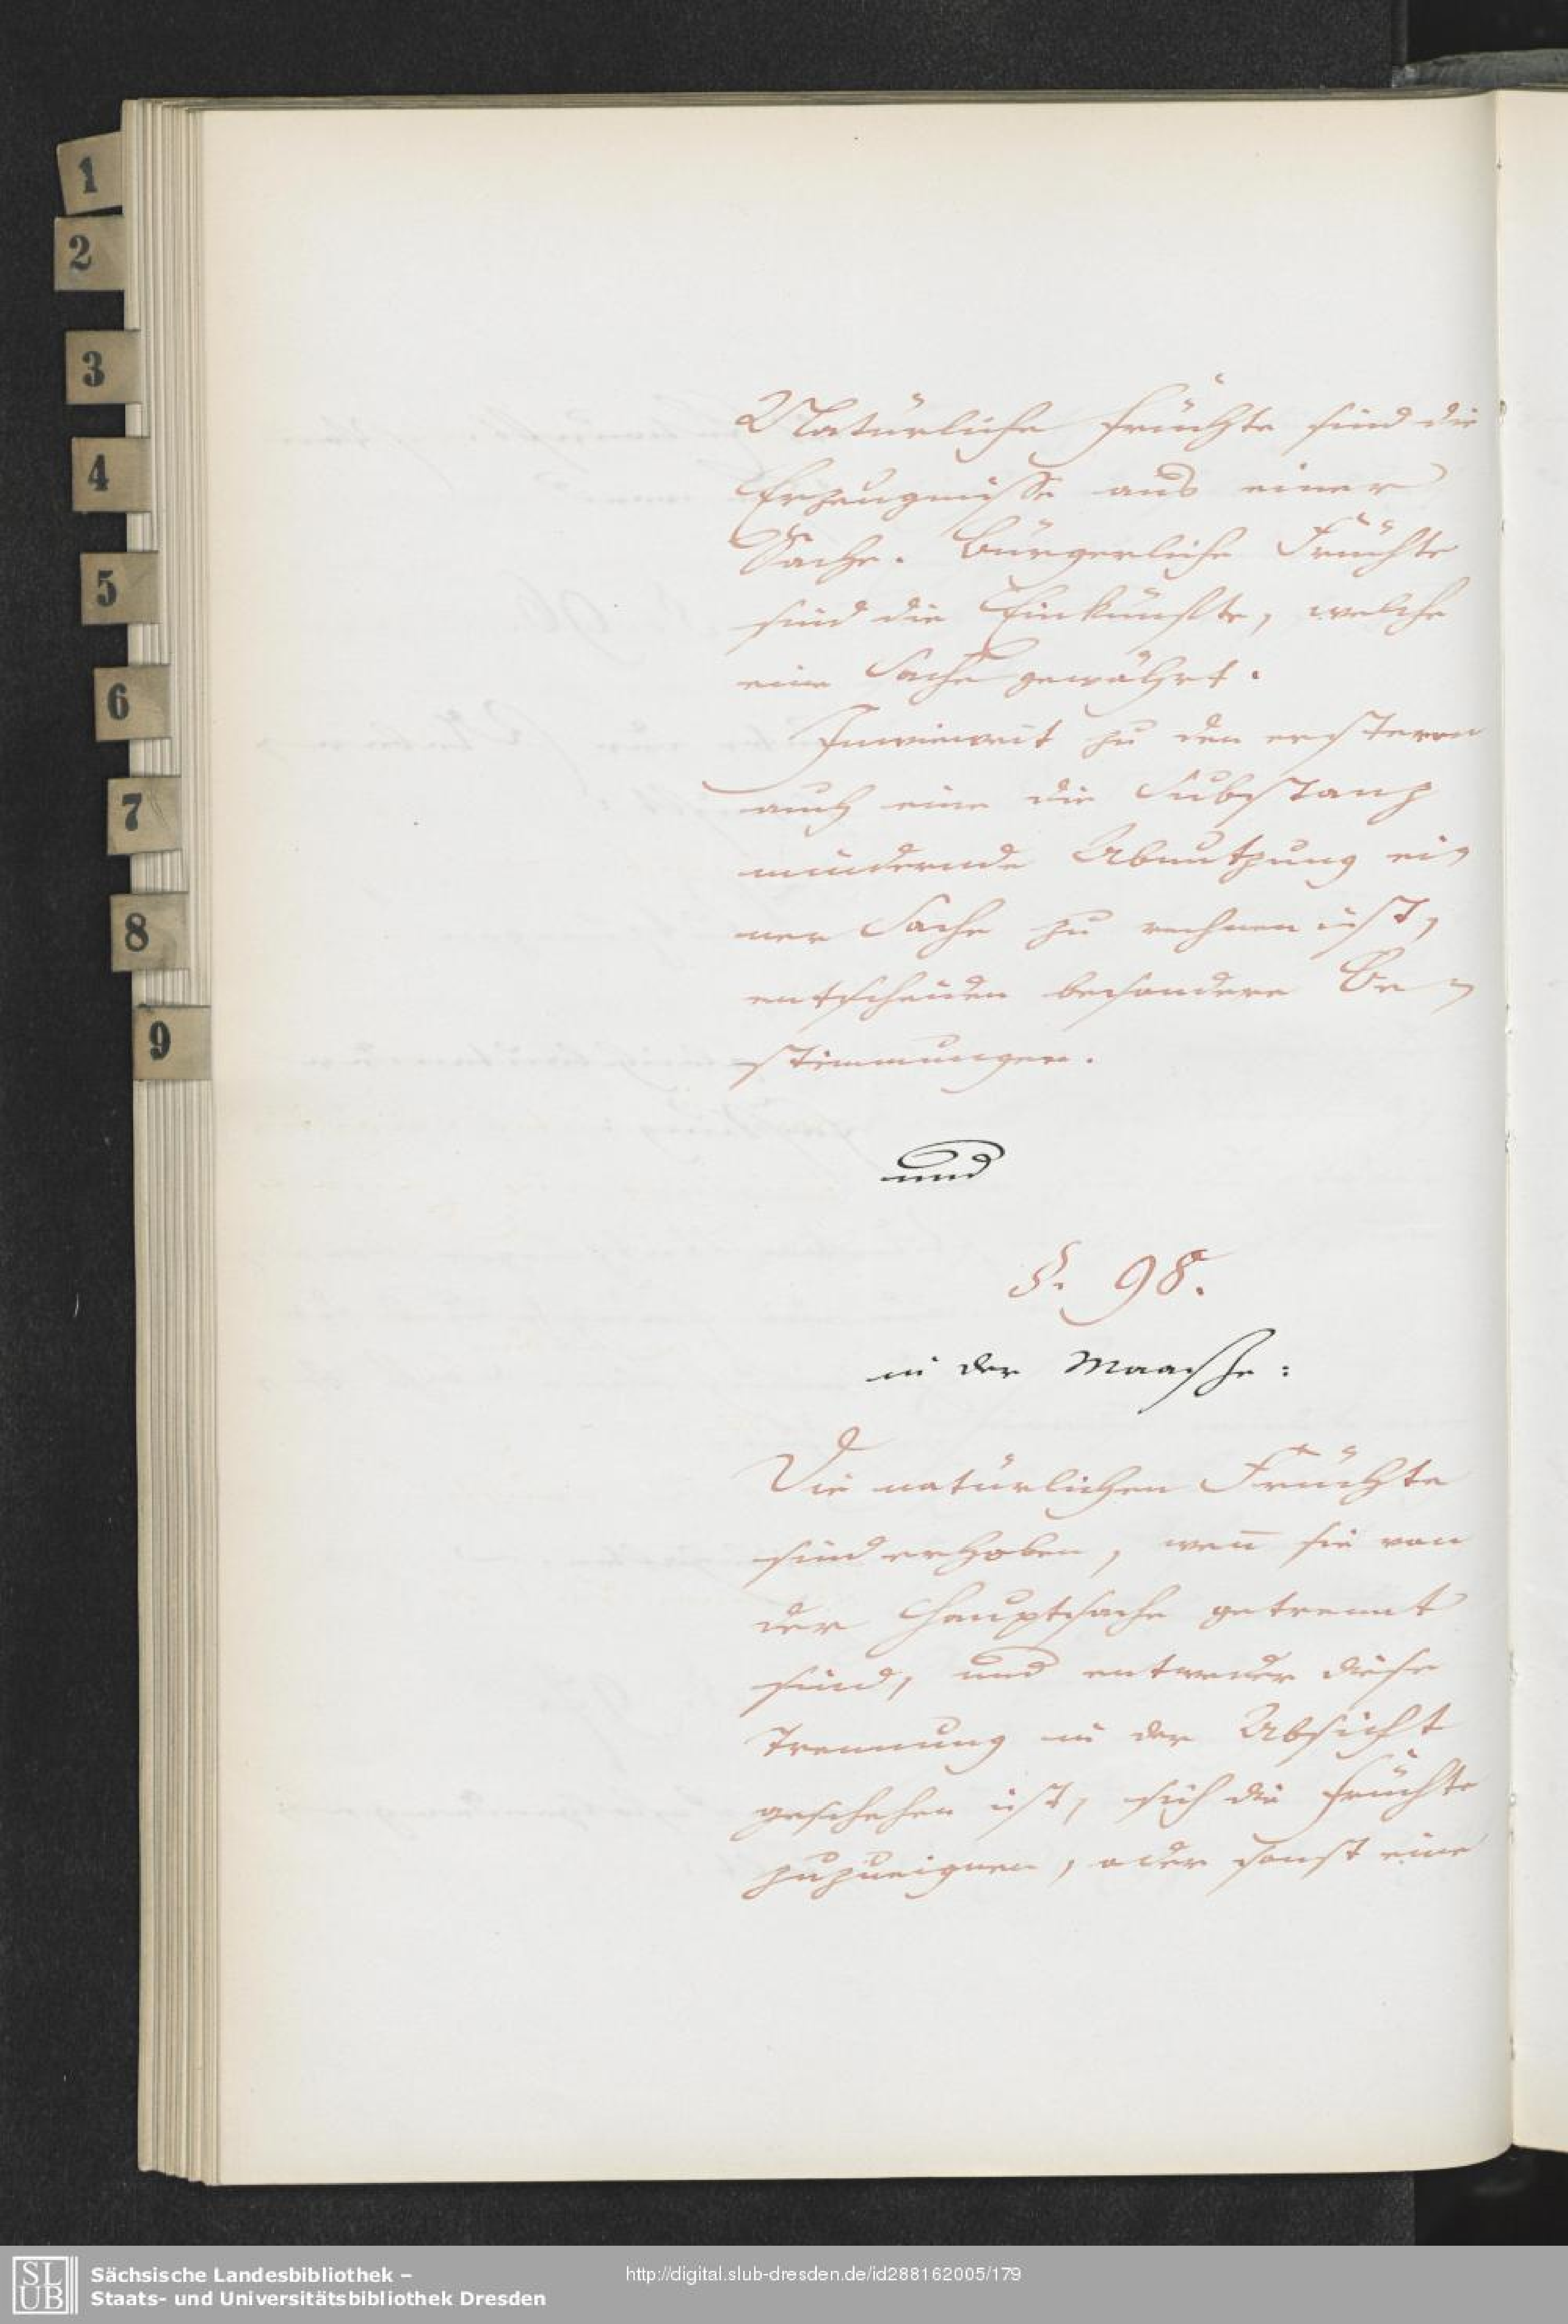 1
2
3
4
5
6
7
8
9
Natürliche Früchte sind die
Erzeugnisse aus einer
Sache. Bürgerliche Früchte
sind die Einkünfte, welche
eine Sache gewährt.
Inwieweit zu den ersteren
auch eine die Substanz
mindernde Abnutzung ei-
ner Sache zu rechnen ist,
entscheiden besondere Be-
stimmungen.
und
§. 98.
in der Maaße:
Die natürlichen Früchte
sind erhoben, wen̄ sie von
der Hauptsache getrennt
sind, und entweder diese
Trennung in der Absicht
geschehen ist, sich die Früchte
zuzueignen, oder sonst eine
SLUB
Sächsische Landesbibliothek –
Staats- und Universitätsbibliothek Dresden
http://digital.slub-dresden.de/id288162005/179